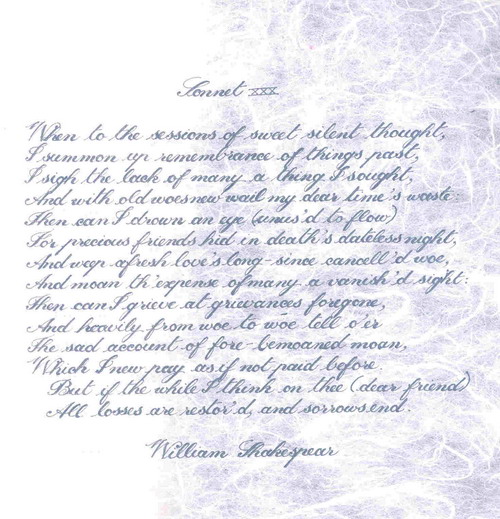 Sonnet XXX
When to the sessions of sweet silent thought,
I summon up remembrance of things past,
I sigh the lack of many a thing I sought,
And with old woes new wail my dear time's waste:
Then can I drown an eye (unus'd to flow)
For precious friends hid in death's dateless night,
And weep afresh love's long-since cancell'd woe,
And moan th'expense of many a vanish'd sight:
Then can I grieve at grievances foregone,
And heavily from woe to woe tell o'er
The sad account of fore-bemoaned moan,
Which I new pay as if not paid before.
But if the while I think on thee (dear friend)
All losses are restor'd, and sorrows end.
William Shakespear